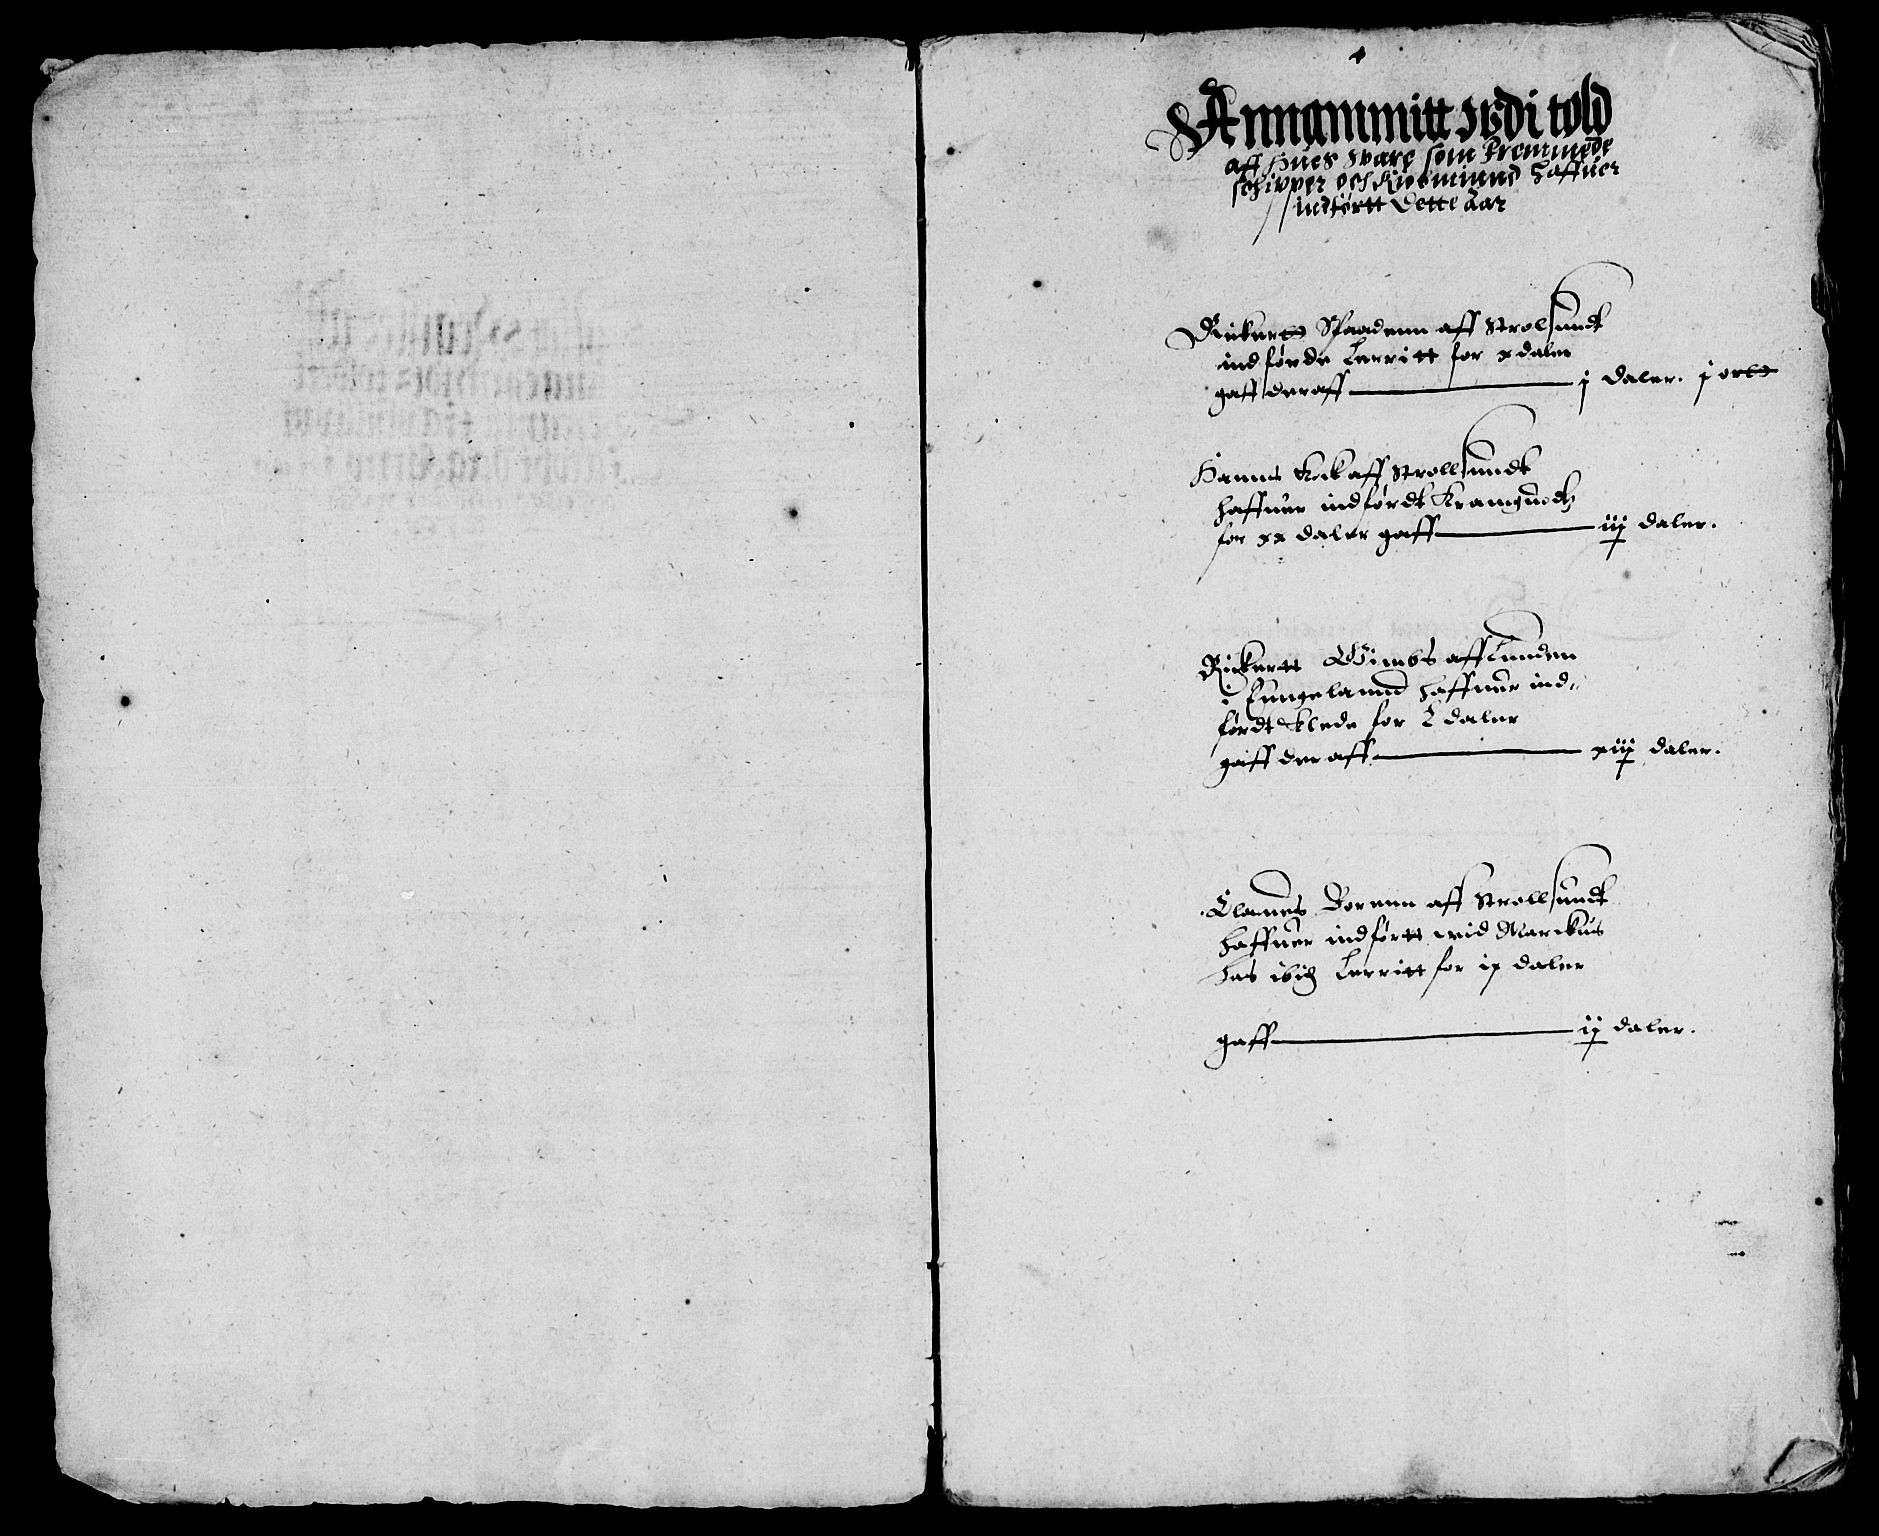 Annammitt udi told
aff hues ware som fremmede
schipper och Kiøbmannd haffuer
indførtt dette aar
Rickertt Spaadenn aff Strolsundt
indførde Lerritt for x daler
gaff deraff j daler. j ortt
Hanns Kock aff Strollsundt
haffuer indførdt Kramgudtz
for xx daler gaff iij daler.
Rickertt Wimbs aff Lunden
i Eungelannd haffuer ind„
førdt Klede for L daler
gaff deraff xiij daler.
Clawes Borenn aff Strollsundt
haffuer indførtt wid Marckus
has ibid Lerritt for ix daler
gaff ij daler.